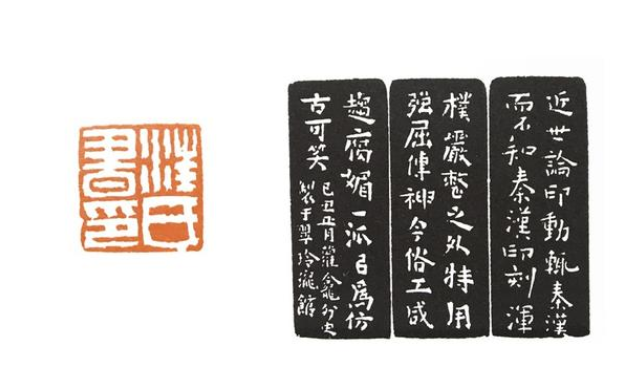 近世論印動輒秦漢
而不知秦漢印刻渾
樸嚴整之外特用
强屈傳神今俗工咸
趨腐媚一派㠯爲仿
古可笑
己丑蘿龕外史
製于翠玲瓏館
汪氏
書印